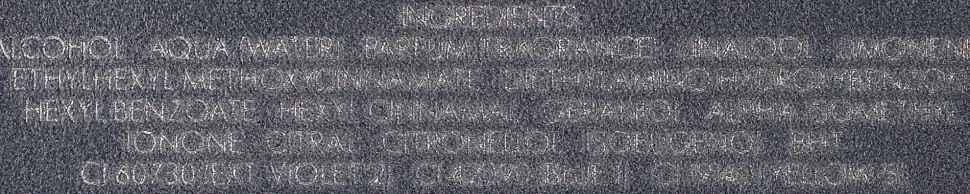 INGREDIENTS
ALCOHOL AQUA (WATER) PARFUM (FRAGRANCE) LINALOOL LIMONENE
ETHYLHEXYL METHOXYCINNAMATE DIETHYLAMINO HYDROXYBENZOYL
HEXYL BENZOATE HEXYL CINNAMAL GERANIOL ALPHA-ISOMETHYL
IONONE CITRAL CITRONELLOL ISOEUGENOL BHT
CI 60730 (EXT. VIOLET 2) CI 42090 (BLUE 1) CI 19140 (YELLOW 5)